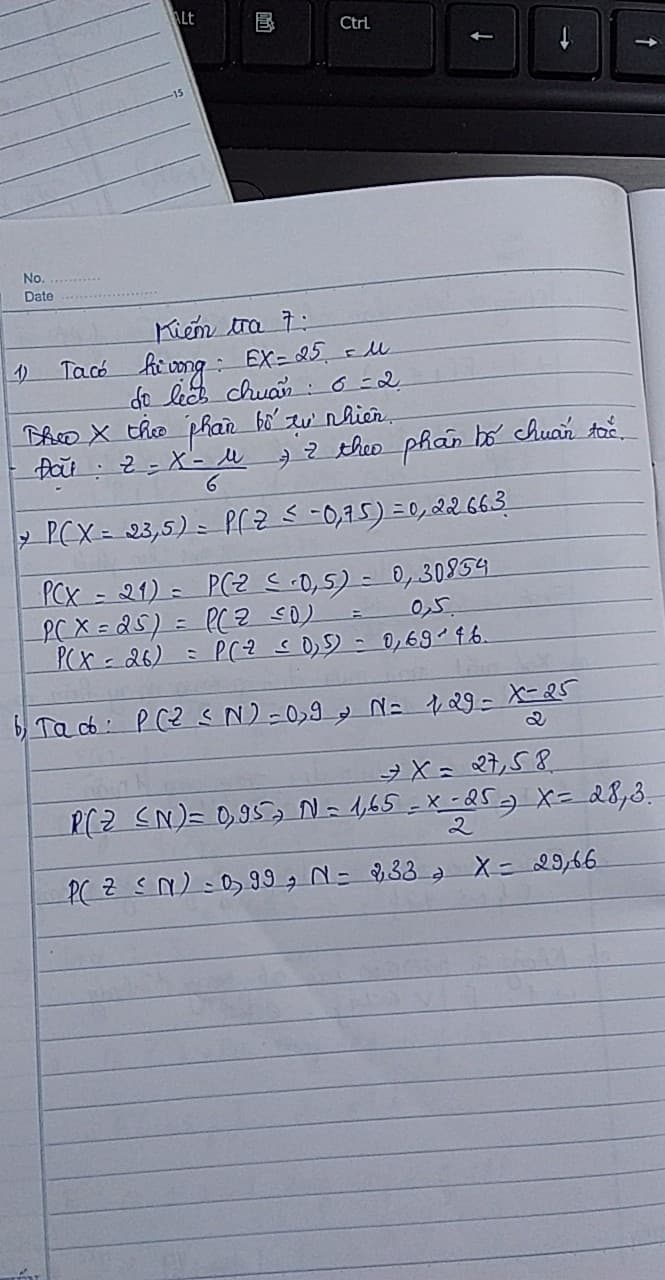 Alt
Ctrl
15
No. ...........
Date ........................
Kiểm tra 7:
1) Ta có kì vọng: EX = 25 = μ
độ lệch chuẩn: σ = 2
Theo X theo phân bố tự nhiên.
Đặt: Z = (X - μ)/σ → Z theo phân bố chuẩn tắc.
→ P(X = 23,5) = P(Z ≤ -0,75) = 0,22663
P(X = 24) = P(Z ≤ -0,5) = 0,30854
P(X = 25) = P(Z ≤ 0) = 0,5.
P(X = 26) = P(Z ≤ 0,5) = 0,69146.
b) Ta có: P(Z ≤ N) = 0,9 → N = 1,29 = (X - 25)/2
→ X = 27,58
P(Z ≤ N) = 0,95 → N = 1,65 = (X - 25)/2 → X = 28,3.
P(Z ≤ N) = 0,99 → N = 2,33 → X = 29,66